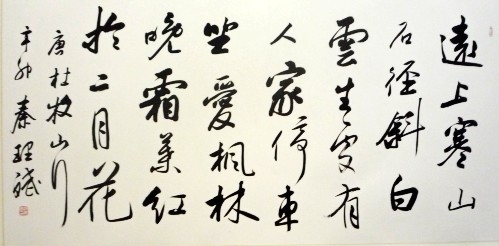 遠上寒山
石徑斜白
雲生處有
人家停車
坐愛楓林
晚霜葉紅
於二月花
唐杜牧山行
辛卯秦理斌